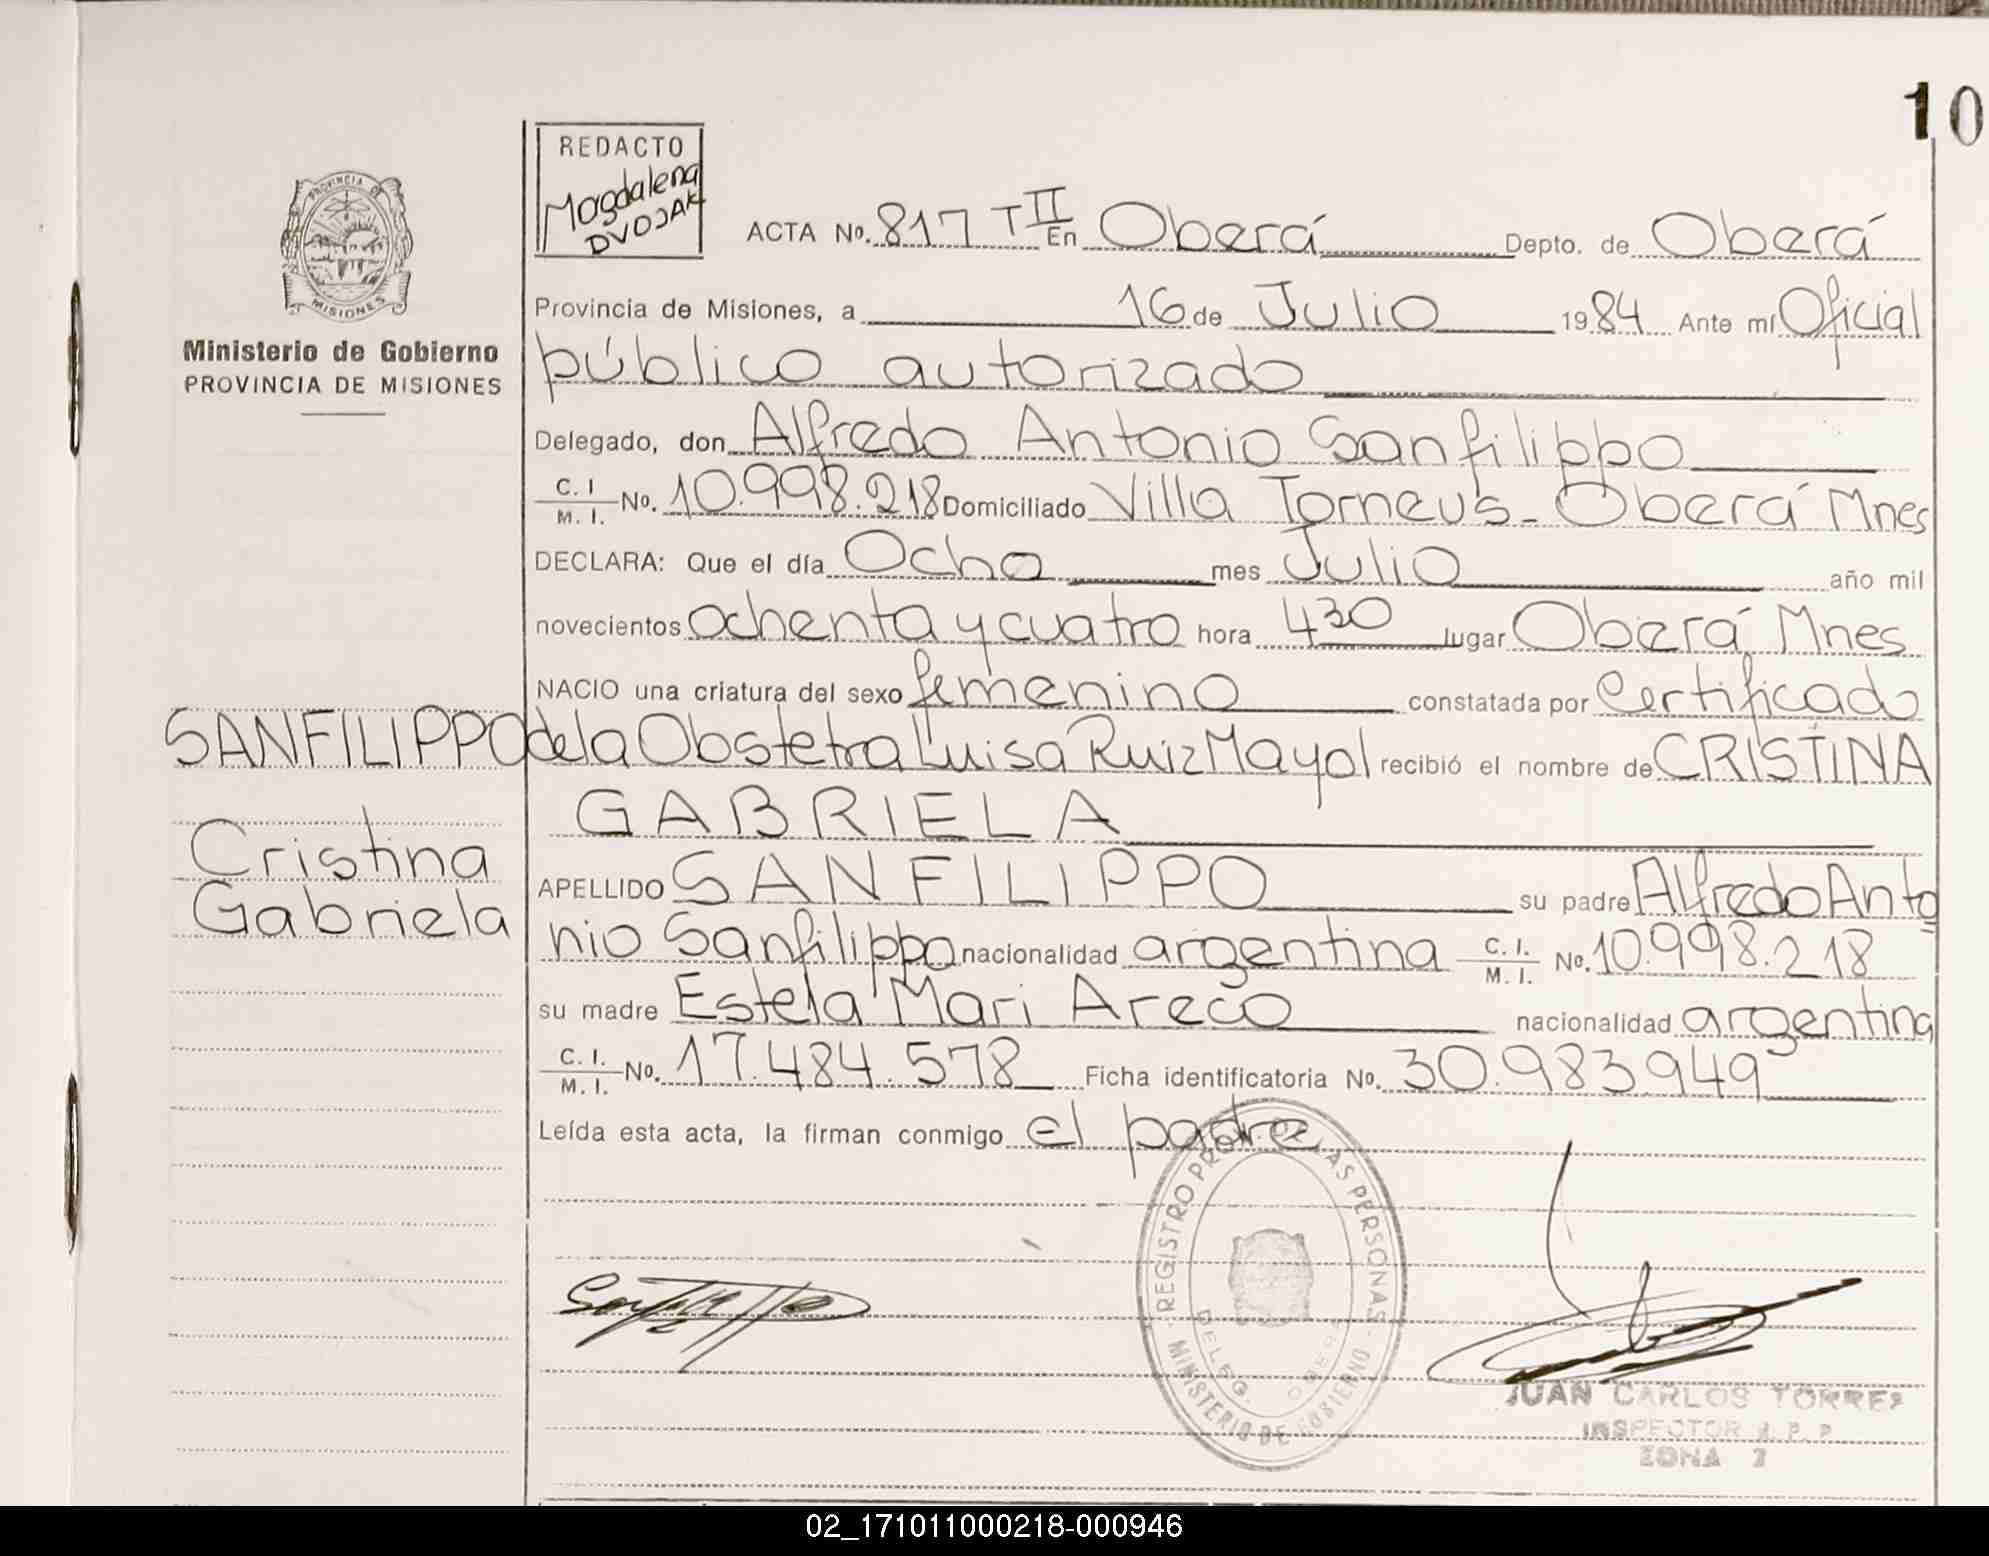 10
REDACTO
Magdalena
DVOJAK
PROVINCIA DE
MISIONES
Ministerio de Gobierno
PROVINCIA DE MISIONES
ACTA No. 817 T II En Oberá Depto. de Oberá
Provincia de Misiones, a 16 de Julio 1984 Ante mí Oficial
público autorizado
Delegado, don Alfredo Antonio Sanfilippo
C. I / M. I. No. 10.998.218 Domiciliado Villa Torneus - Oberá Mnes
DECLARA: Que el día Ocho mes Julio año mil
novecientos ochenta y cuatro hora 4 30 lugar Oberá Mnes
NACIO una criatura del sexo femenino constatada por Certificado
de la Obstetra Luisa Ruiz Mayol recibió el nombre de CRISTINA
GABRIELA
APELLIDO SANFILIPPO su padre Alfredo Anto
nio Sanfilippo nacionalidad argentina C. I. / M. I. No. 10.998.218
su madre Estela Mari Areco nacionalidad argentina
C. I. / M. I. No. 17.484.578 Ficha identificatoria No. 30.983.949
Leída esta acta, la firman conmigo el padre
SANFILIPPO
Cristina
Gabriela
REGISTRO PROV. DE LAS PERSONAS
MINISTERIO DE GOBIERNO
DELEG. OBERA
JUAN CARLOS TORRES
INSPECTOR R. P. P.
ZONA
02_171011000218-000946